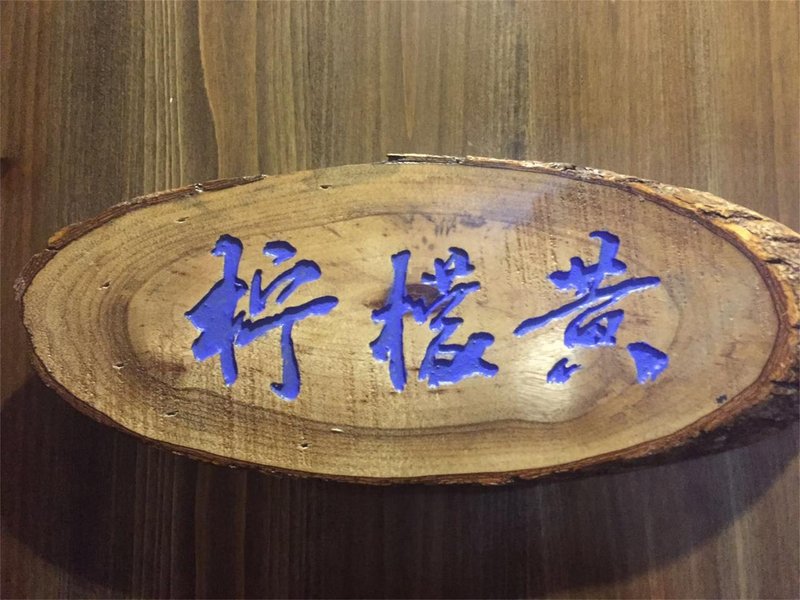 柠檬黄